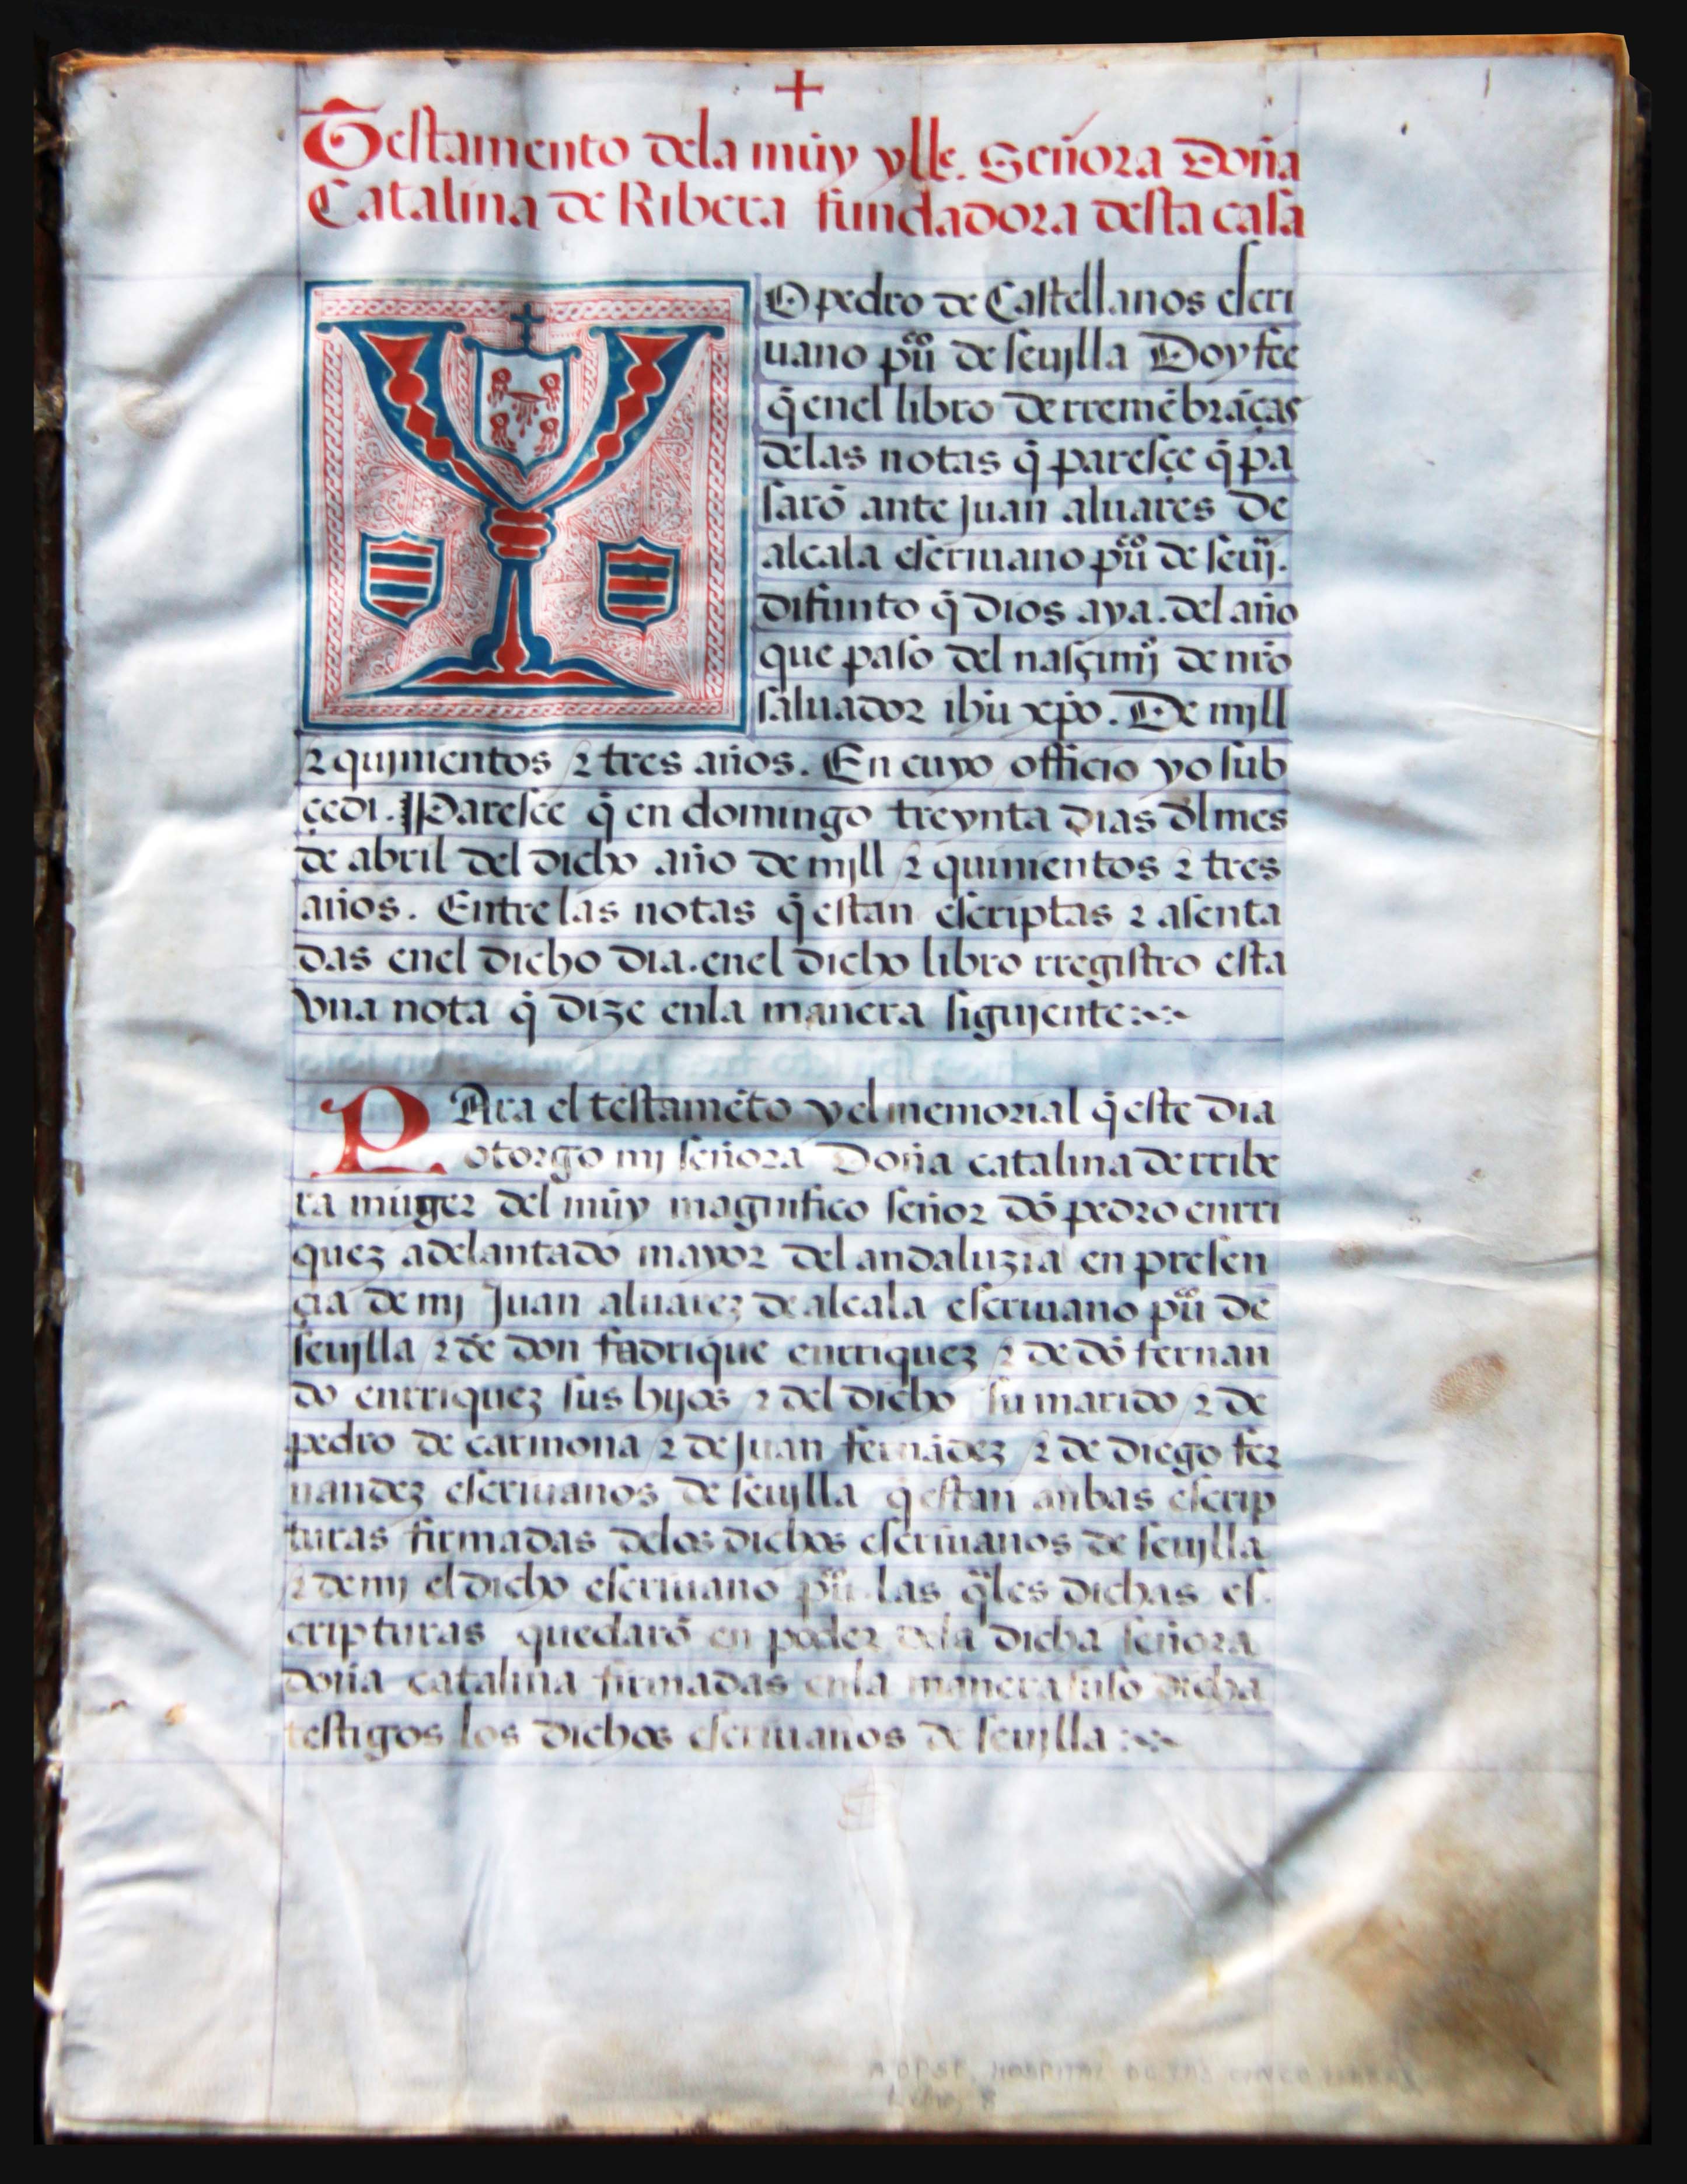 +
Testamento dela muy ylle. Señora Doña
Catalina de Ribera fundadora desta casa
YO pedro de Castellanos escri
uano puco de seujlla Doy fee
q̄ enel libro de rremēbrāças
delas notas q̄ paresçe q̄ pa
sarō ante juan aluares de
alcala escriuano puco de seuj.
difunto q̄ dios aya. del año
que paso del nasçimj de nro
saluador ihu xpo. De mjll
⁊ qujnientos ⁊ tres años. En cuyo officio yo sub
çedi. Paresce q̄ en domingo treynta dias dl mes
de abril del dicho año de mjll ⁊ quinientos ⁊ tres
años. Entre las notas q̄ estan escriptas ⁊ asenta
das enel dicho dia. enel dicho libro rregistro esta
vna nota q̄ dize enla manera sigujente
PAra el testamēto y el memorial q̄ este dia
otorgo mj señora Doña catalina de rribe
ra muger del muy magnifico señor dō pedro enrri
quez adelantado mayor del andaluzia en presen
çia de mj Juan aluarez de alcala escriuano puco de
seujlla ⁊ de don fadrique enrriquez ⁊ de dō fernan
do enrriquez sus hijos ⁊ del dicho su marido ⁊ de
pedro de carmona ⁊ de juan fernādez ⁊ de diego fer
nandez escriuanos de seujlla q̄ estan anbas escrip
turas firmadas delos dichos escriuanos de seujlla
⁊ de mj el dicho escriuano puco las q̄les dichas es.
cripturas quedarō en poder dela dicha señora
doña catalina firmadas enla manera suso dicha
testigos los dichos escriuanos de seujlla
HOSPITAL DE LAS CINCO